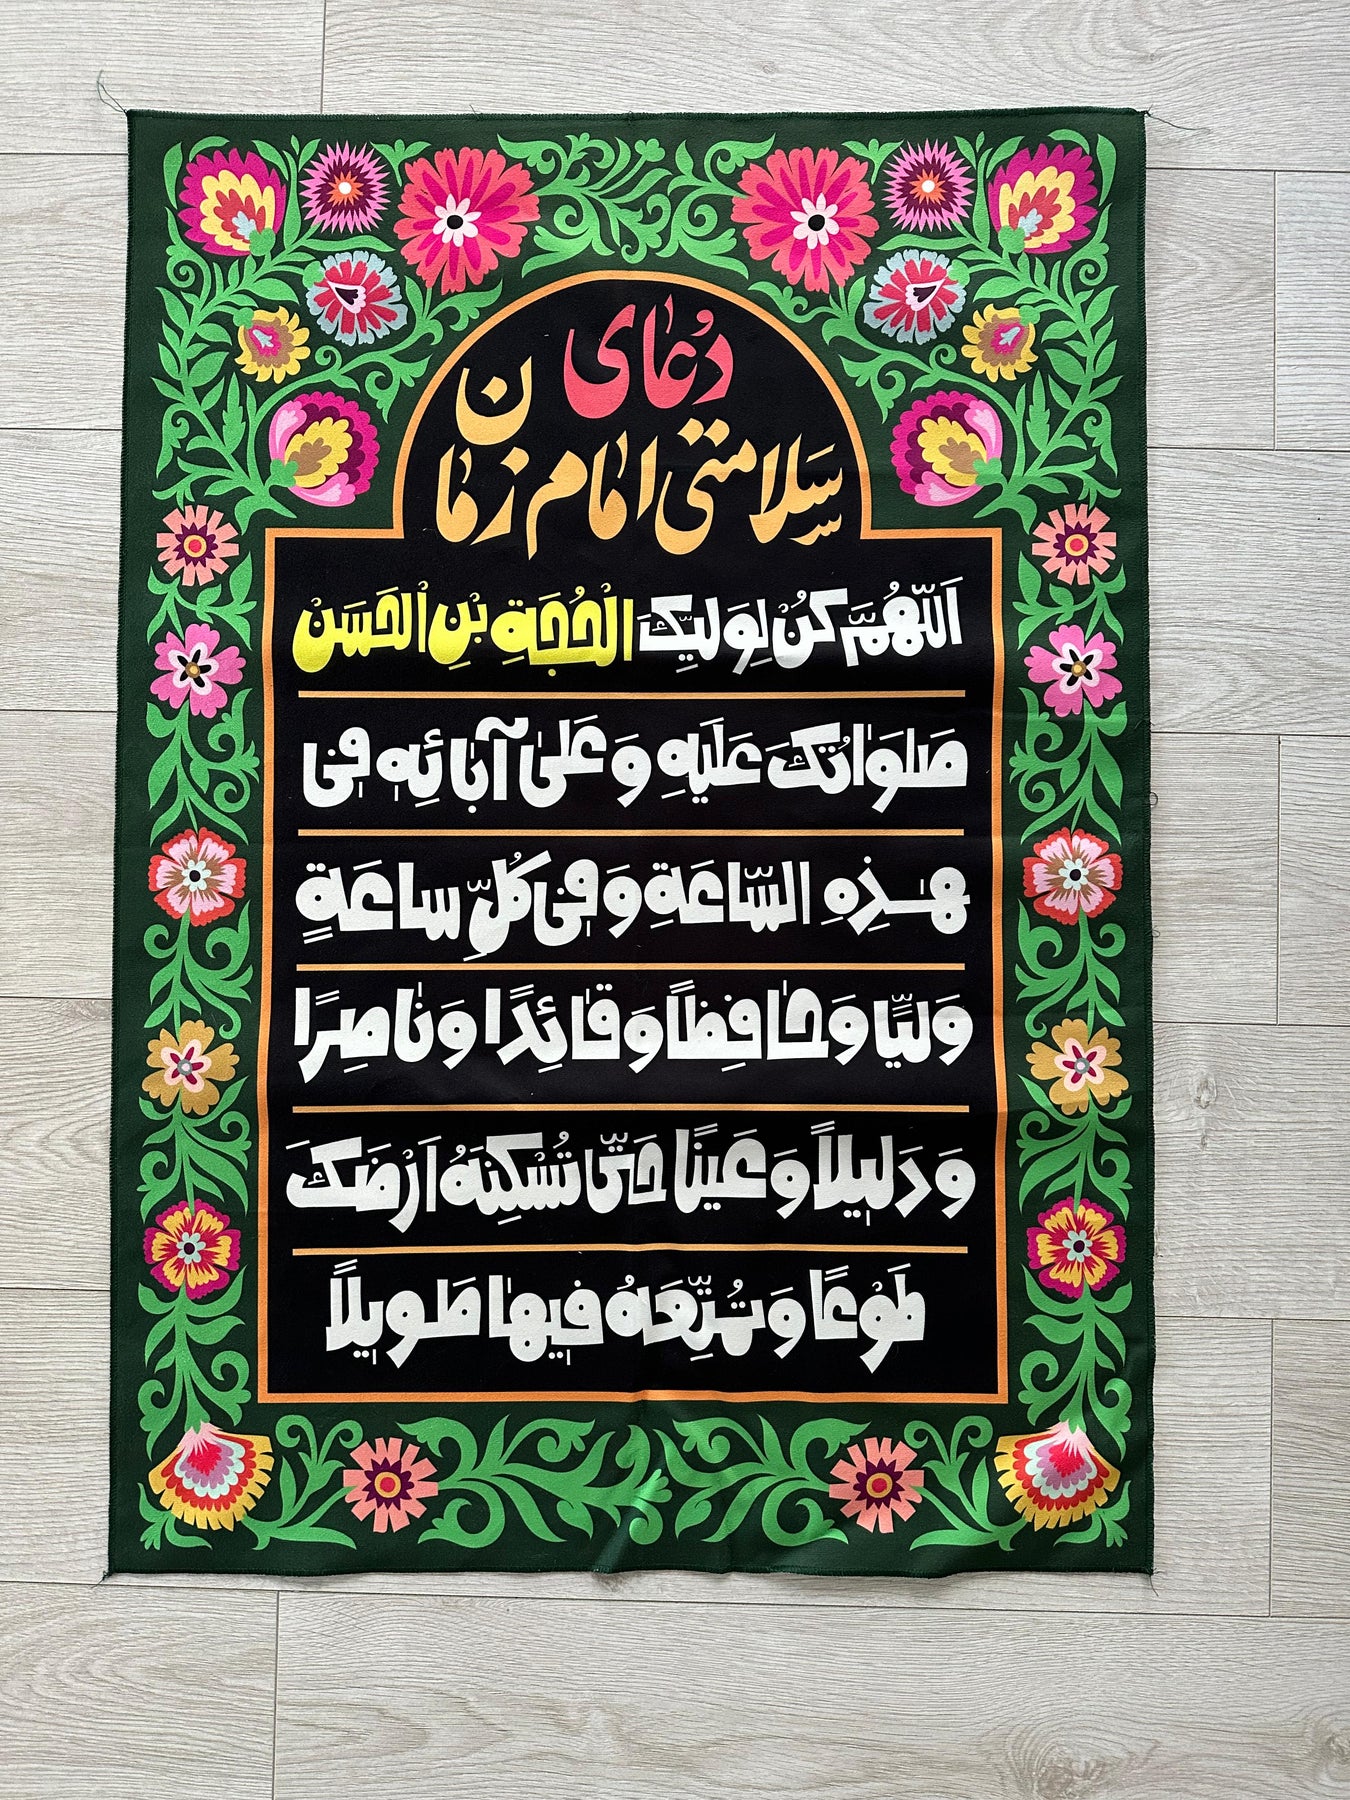 دُعای
سَلامتی امام زمان
اَللّهُمَّ كُنْ لِوَلیِّكَ الْحُجَةِ بْنِ الْحَسَنْ
صَلَوٰاتُكَ عَلَیهِ وَ عَلیٰ آبٰائِهِ فِی
هـٰذِهِ السّٰاعَةِ وَ فِی كُلِّ ساعَةٍ
وَلیّاً وَ حٰافِظاً وَ قٰائِدًا وَ نٰاصِرًا
وَ دَلیٖلاً وَ عَینًا حَتّیٰ تُسْكِنَهُ اَرْضَكَ
طَوْعًا وَ تُمَتِّعَهُ فیٖهٰا طَویٖلاً